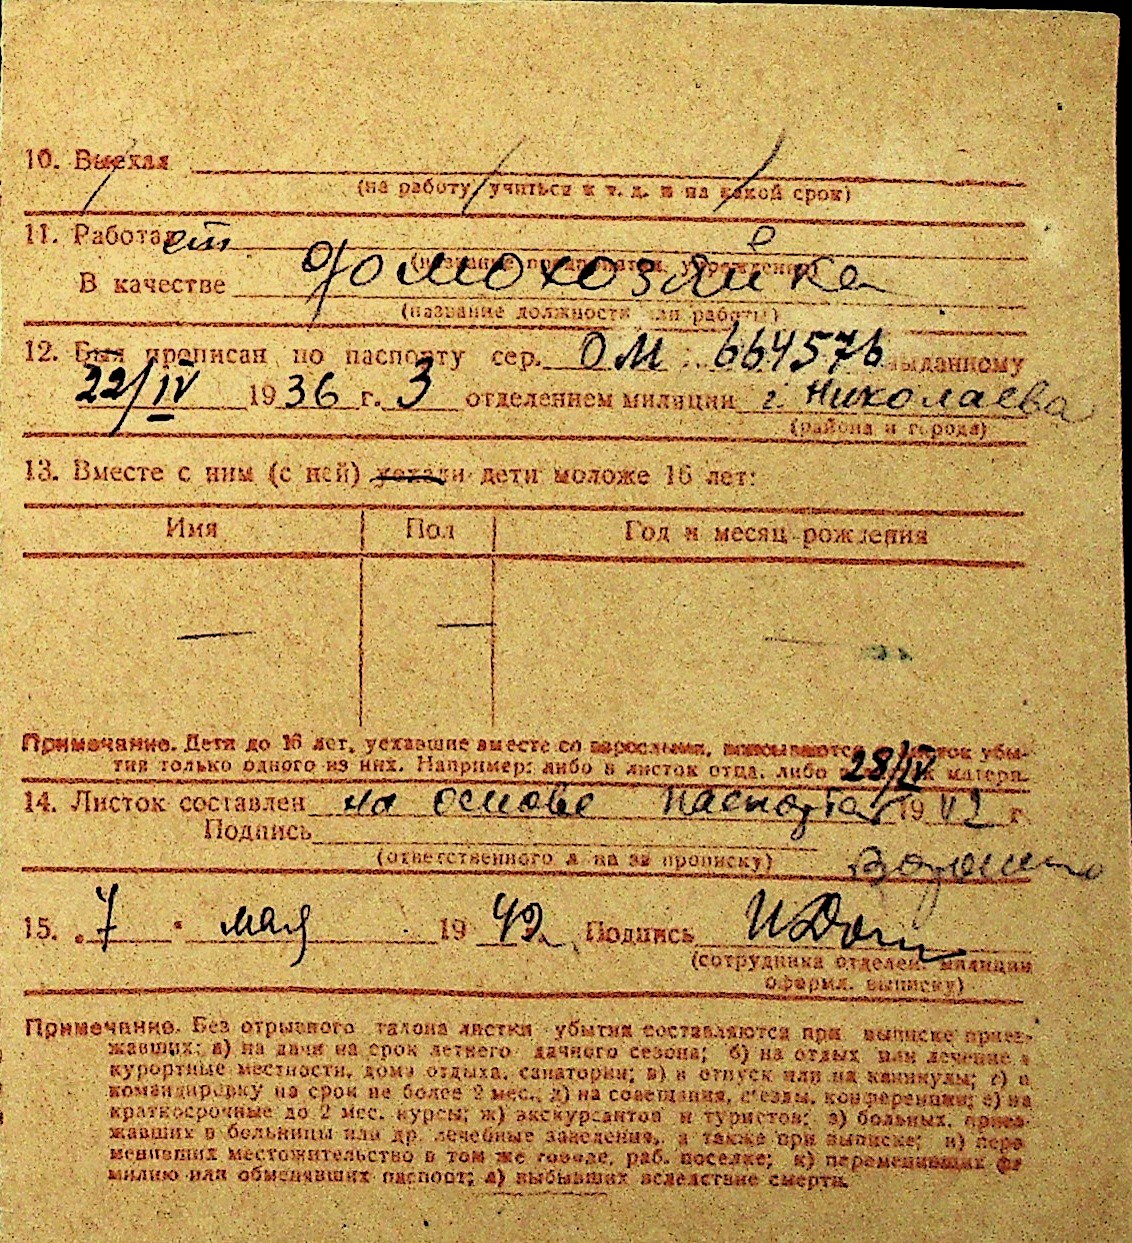 10. Выехал
(на работу, учиться и т. д. и на какой срок)
11. Работает
(название предприятия, учреждения)
В качестве домохозяйка
(название должности или работы)
12. Был прописан по паспорту сер. ОМ 664576 выданному
22/IV 1936 г. 3 отделением милиции г. Николаева
(района и города)
13. Вместе с ним (с ней) уехали дети моложе 16 лет:
Имя Пол Год и месяц рождения
— — —
Примечание. Дети до 16 лет, уехавшие вместе со взрослыми, вписываются листок убы-
тия только одного из них. Например: либо в листок отца, либо матери.
28/IV
14. Листок составлен на основе паспорта 1942 г
Подпись
(ответственного за прописку)
15. „7" мая 1942 Подпись
(сотрудника отделен. милиции
оформл. выписку)
Примечание. Без отрывного талона листки убытия составляются при выписке приез-
жавших: а) на дачи на срок летнего дачного сезона; б) на отдых или лечение в
курортные местности, дома отдыха, санатории; в) в отпуск или на каникулы; г) в
командировку на срок не более 2 мес., д) на совещания, с'езды, конференции; е) на
краткосрочные до 2 мес. курсы; ж) экскурсантов и туристов; з) больных, приез-
жавших в больницы или др. лечебные заведения, а также при выписке; и) пере
менивших местожительство в том же городе, раб. поселке; к) переменивших фа
милию или обменявших паспорт; л) выбывших вследствие смерти.